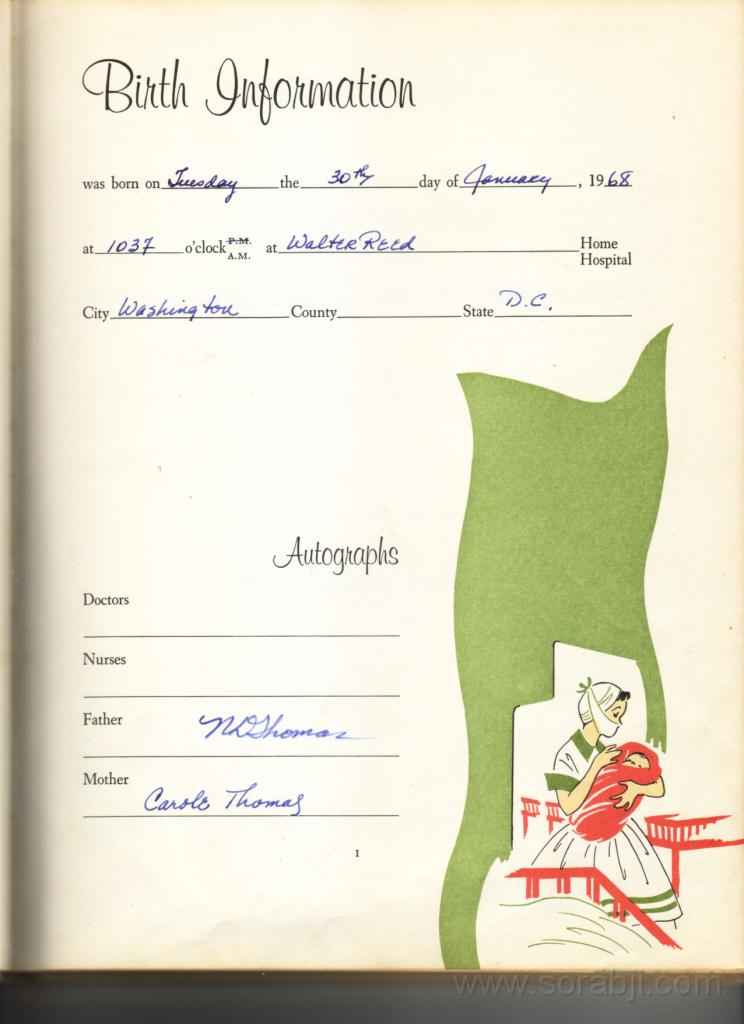 Birth Information
was born on Tuesday the 30th day of January, 1968
at 1037 o'clock P.M. A.M. at Walter Reed Home Hospital
City Washington County State D.C.
Autographs
Doctors
Nurses
Father NDThomas
Mother Carole Thomas
1
www.sorabji.com